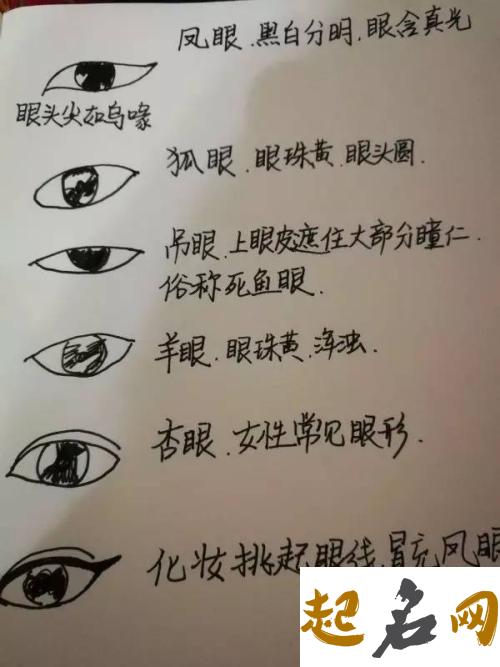 凤眼.黑白分明.眼含真光
眼头尖如鸟喙
狐眼.眼珠黄.眼头圆.
吊眼.上眼皮遮住大部分瞳仁.
俗称死鱼眼.
羊眼.眼珠黄.浑浊.
杏眼.女性常见眼形.
化妆挑起眼线.冒充凤眼
起名网